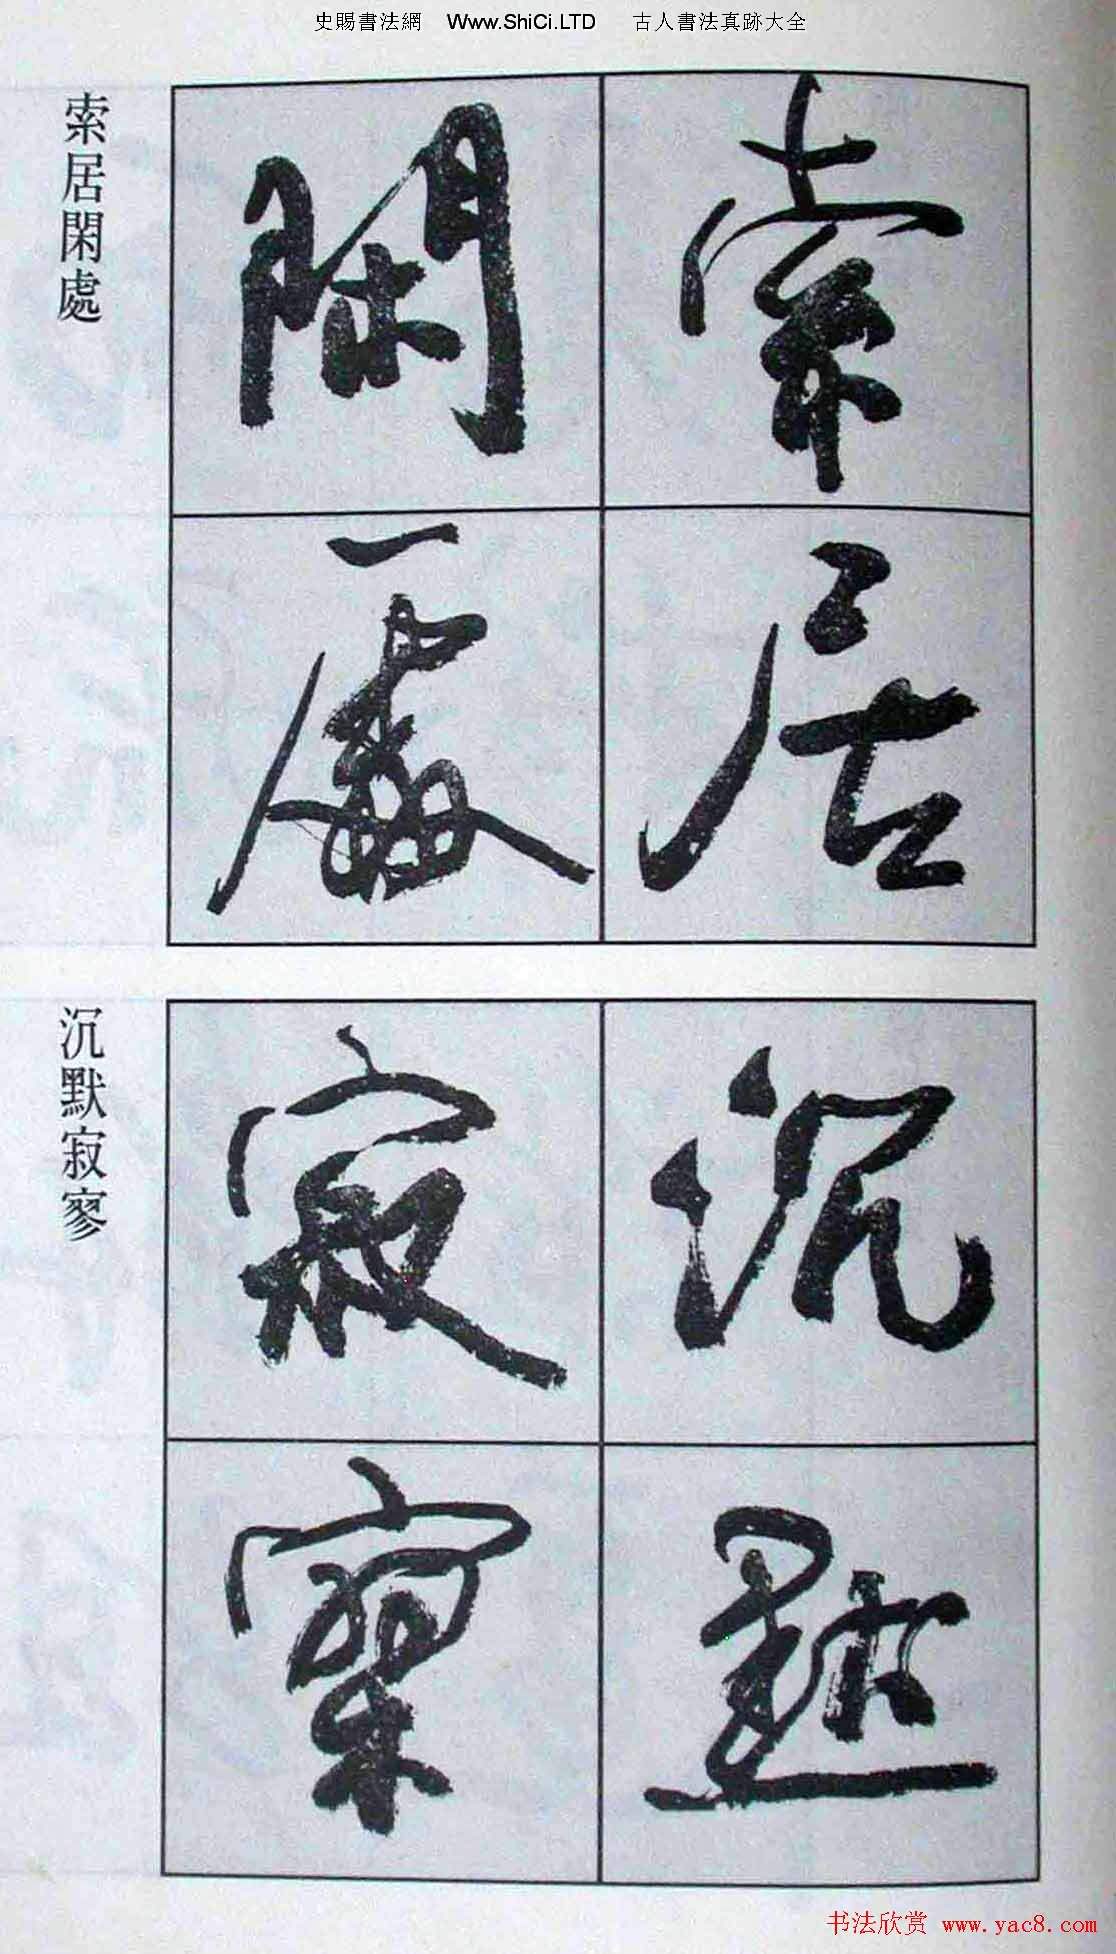 史賜書法網 Www.ShiCi.LTD 古人書法真跡大全
索居
閑處
索居閑處
沉默
寂寥
沉默寂寥
书法欣赏 www.yac8.com